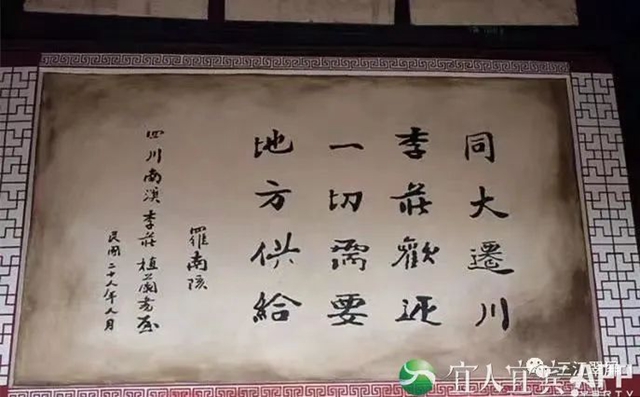 同大遷川
李莊歡迎
一切需要
地方供給
羅南陔
四川南溪李莊植蘭書屋
民國二十八年八月
宜人宜賓APP